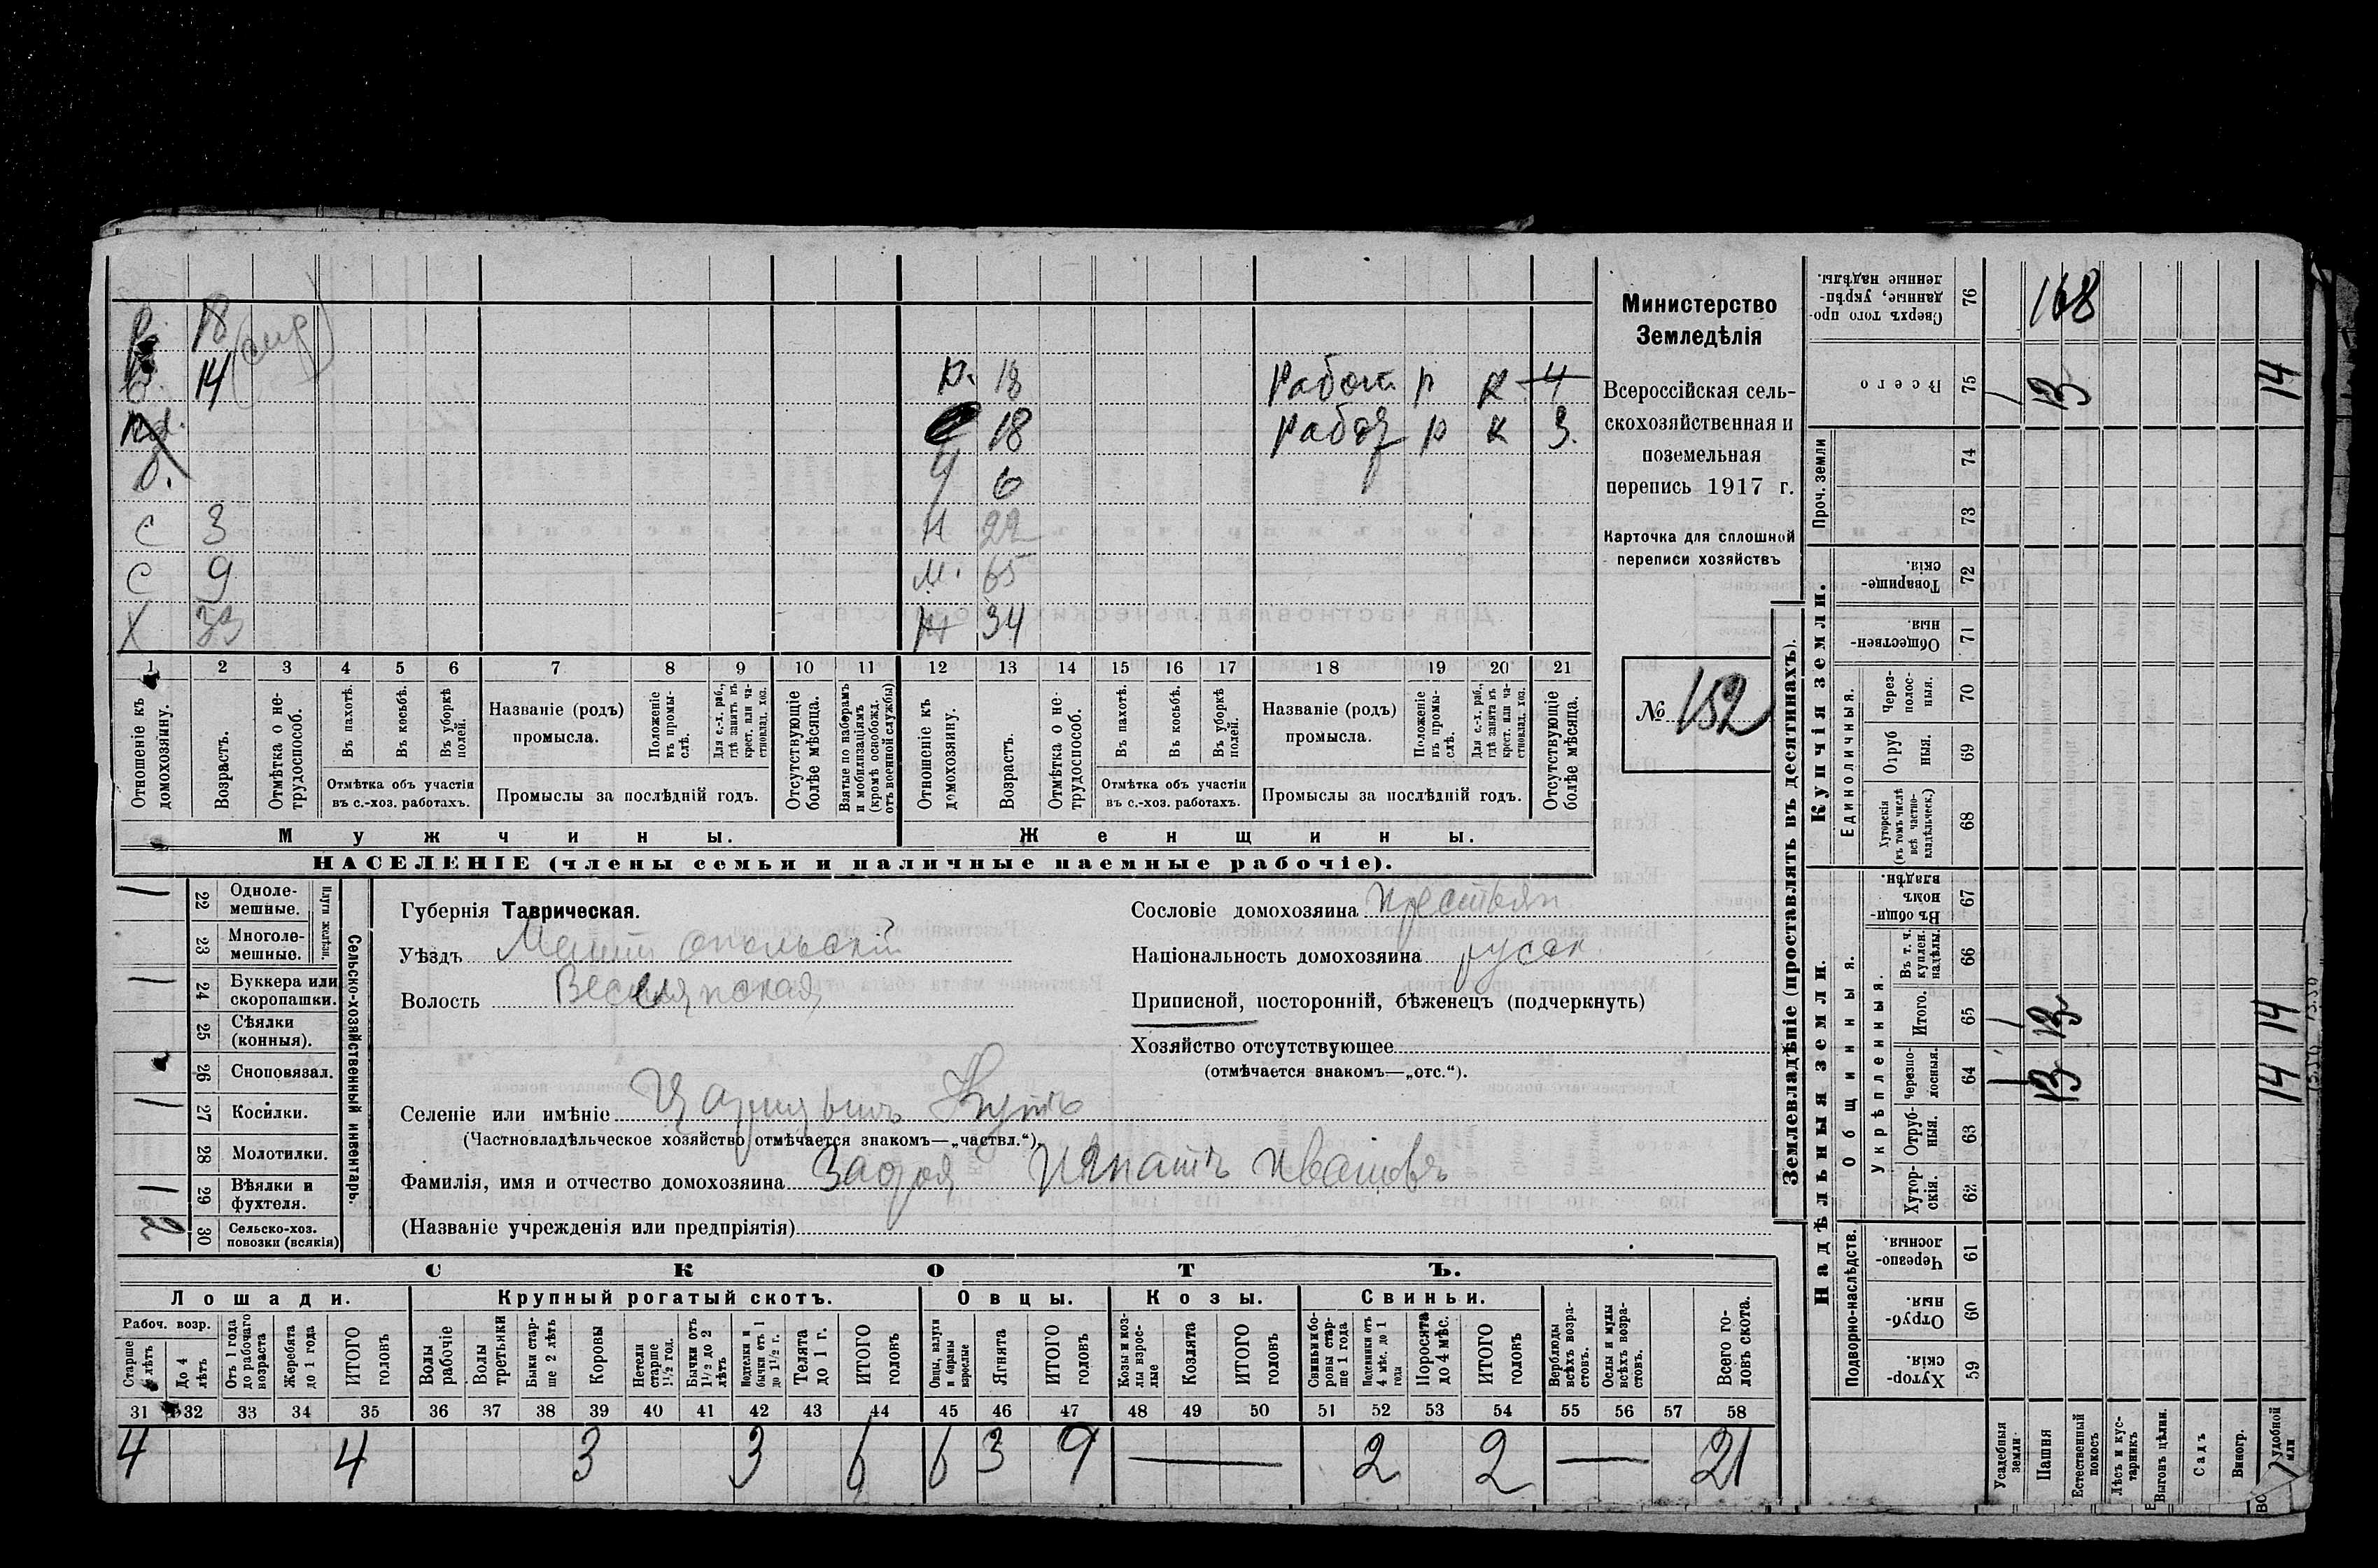 р. 18
р. 14 р. 18 Работ р к 4
18 работ р к 3.
б. ч 6
с 3 н 22
с 9 м. 65
х 33 34
1 2 3 4 5 6 7 8 9 10 11 12 13 14 15 16 17 18 19 20 21
Отношеніе къ домохозяину.
Возрастъ.
Отмѣтка о не-трудоспособ.
Въ пахотѣ.
Въ косьбѣ.
Въ уборкѣ полей.
Отмѣтка объ участіи въ с.-хоз. работахъ.
Названіе (родъ) промысла.
Положеніе въ промы-слѣ.
Для с.-х. раб., гдѣ занятъ въ крест. или ча-стновлад. хоз.
Промыслы за послѣдній годъ.
Отсутствующіе болѣе мѣсяца.
Взятые по наборамъ и мобилизаціямъ (кромѣ освобожд. отъ военной службы)
Отношеніе къ домохозяину.
Возрастъ.
Отмѣтка о не-трудоспособ.
Въ пахотѣ.
Въ косьбѣ.
Въ уборкѣ полей.
Отмѣтка объ участіи въ с.-хоз. работахъ.
Названіе (родъ) промысла.
Положеніе въ промы-слѣ.
Для с.-х. раб., гдѣ занята въ крест. или ча-стновлад. хоз.
Промыслы за послѣдній годъ.
Отсутствующіе болѣе мѣсяца.
Мужчины. Женщины.
НАСЕЛЕНІЕ (члены семьи и наличные наемные рабочіе).
Министерство
Земледѣлія
Всероссійская сель-
скохозяйственная и
поземельная
перепись 1917 г.
Карточка для сплошной
переписи хозяйствъ
№ 152
22 Одноле-мешные.
23 Многоле-мешные.
Плуги желѣзн.
24 Буккера или скоропашки.
25 Сѣялки (конныя).
26 Сноповязал.
27 Косилки.
28 Молотилки.
29 Вѣялки и фухтеля.
30 Сельско-хоз. повозки (всякія)
Сельско-хозяйственный инвентарь.
Губернія Таврическая.
Уѣздъ Мелитопольскій
Волость Веселянская
Сословіе домохозяина крестьян.
Національность домохозяина русск.
Приписной, посторонній, бѣженецъ (подчеркнуть)
Хозяйство отсутствующее
(отмѣчается знакомъ—„отс.“).
Селеніе или имѣніе Кутъ
(Частновладѣльческое хозяйство отмѣчается знакомъ—„частвл.“).
Фамилія, имя и отчество домохозяина Игнатъ Ивановъ
(Названіе учрежденія или предпріятія)
СКОТЪ.
Лошади. Крупный рогатый скотъ. Овцы. Козы. Свиньи.
Рабоч. возр.
Старше лѣтъ
До 4 лѣтъ
Отъ 1 года до рабочаго возраста
Жеребята до 1 года
ИТОГО головъ
Волы рабочіе
Волы третьяки
Быки стар-ше 2 лѣтъ
Коровы
Нетели старше 1½ год.
Бычки отъ 1½ до 2 лѣтъ
Нетелки и бычки отъ 1 до 1½ г.
Телята до 1 г.
ИТОГО головъ
Овцы, валухи и бараны взрослые
Ягнята
ИТОГО головъ
Козы и коз-лы взрос-лые
Козлята
ИТОГО головъ
Свиньи и бо-ровы стар-ше 1 года
Подсвинки отъ 4 мѣс. до 1 года
Поросята до 4 мѣс.
ИТОГО головъ
Верблюды всѣхъ возра-стовъ.
Ослы и мулы всѣхъ возра-стовъ.
Всего го-ловъ скота.
31 32 33 34 35 36 37 38 39 40 41 42 43 44 45 46 47 48 49 50 51 52 53 54 55 56 57 58
4 4 3 3 6 6 3 9 — 2 2 — 21
Землевладѣніе (проставлять въ десятинахъ).
Сверхъ того про-данные, укрѣп-ленные надѣлы. 76 168
Всего 75 13 14
Проч. земли 74
73
Купчія земли.
Товарище-скія. 72
Обществен-ныя. 71
Единоличныя.
Через-полос-ныя. 70
Отруб ныя. 69
Хуторскія (въ томъ числѣ всѣ частно-владѣльческ.) 68
Надѣльныя земли.
Общинныя.
Въ общи-номъ владѣн. 67
Укрѣпленныя.
Въ т. ч. куплен. надѣлы. 66
Итого. 65 1 13 14
Черезпо-лосныя. 64 1 13 14
Отруб-ныя. 63
Хутор-скія. 62
Подворно-наслѣдств.
Черезпо-лосныя 61
Отруб-ныя. 60
Хутор-скія 59
Усадебныя земли.
Пашня
Естественный покосъ
Лѣсъ и кус-тарникъ
Выгонъ цѣлин.
Садъ
Виногр.
удобной